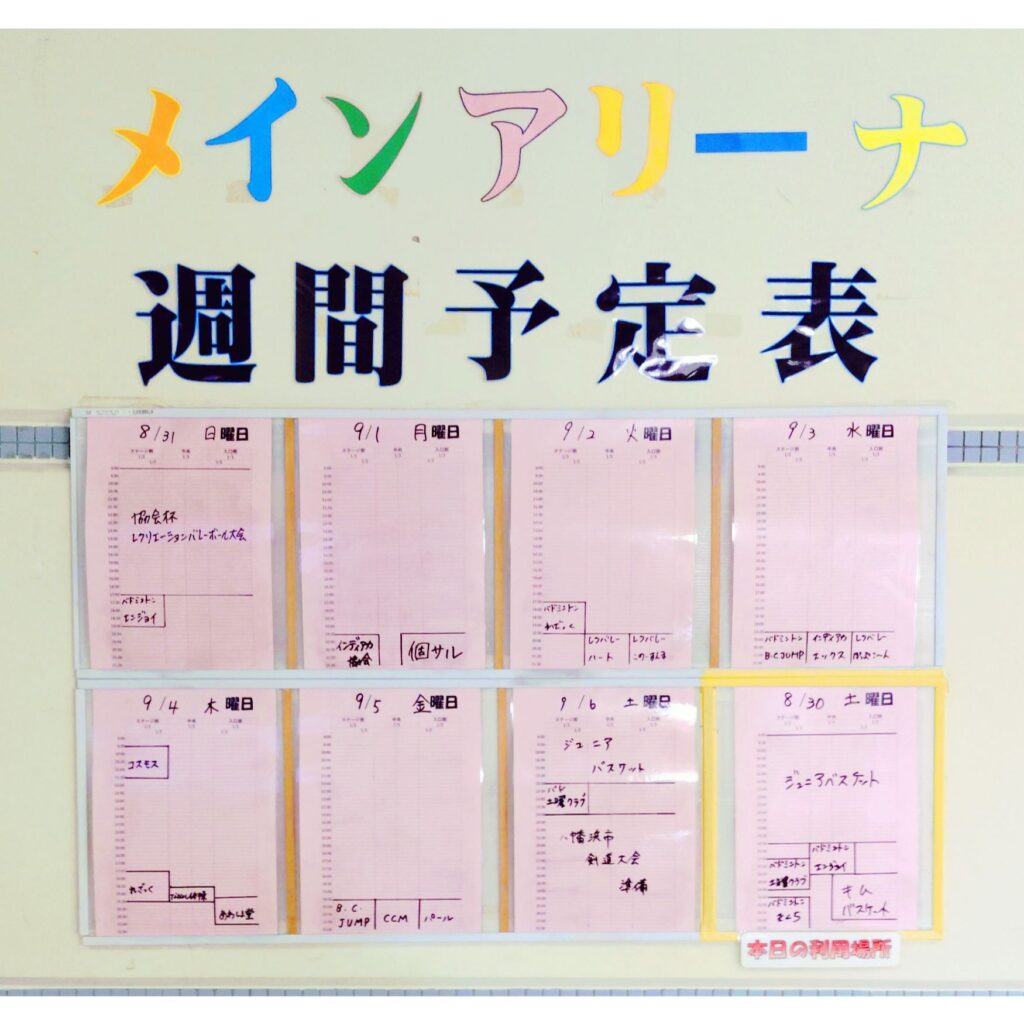 メインアリーナ
週間予定表
8/31 日曜日
ステージ側 中央 入口側
1/3 1/3 1/3
協会杯
レクリエーションバレーボール大会
バドミントン
エンジョイ
9/1 月曜日
ステージ側 中央 入口側
1/3 1/3 1/3
インディアカ
協会
個サル
9/2 火曜日
ステージ側 中央 入口側
1/3 1/3 1/3
バドミントン
わざっく
レクバレー
ハート
レクバレー
9/3 水曜日
ステージ側 中央 入口側
1/3 1/3 1/3
バドミントン
B.C.JUMP
インディアカ
エックス
レクバレー
9/4 木曜日
ステージ側 中央 入口側
1/3 1/3 1/3
コスモス
わざっく
9/5 金曜日
ステージ側 中央 入口側
1/3 1/3 1/3
B.C.
JUMP
CCM
パール
9/6 土曜日
ステージ側 中央 入口側
1/3 1/3 1/3
ジュニア
バスケット
バド
土曜クラブ
八幡浜市
剣道大会
準備
8/30 土曜日
ステージ側 中央 入口側
1/3 1/3 1/3
ジュニアバスケット
バドミントン
エンジョイ
バドミントン
土曜クラブ
キム
バスケット
バドミントン
さくら
本日の利用場所